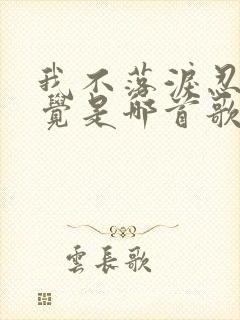 我不落淚忍
覺是哪首歌
雲長歌